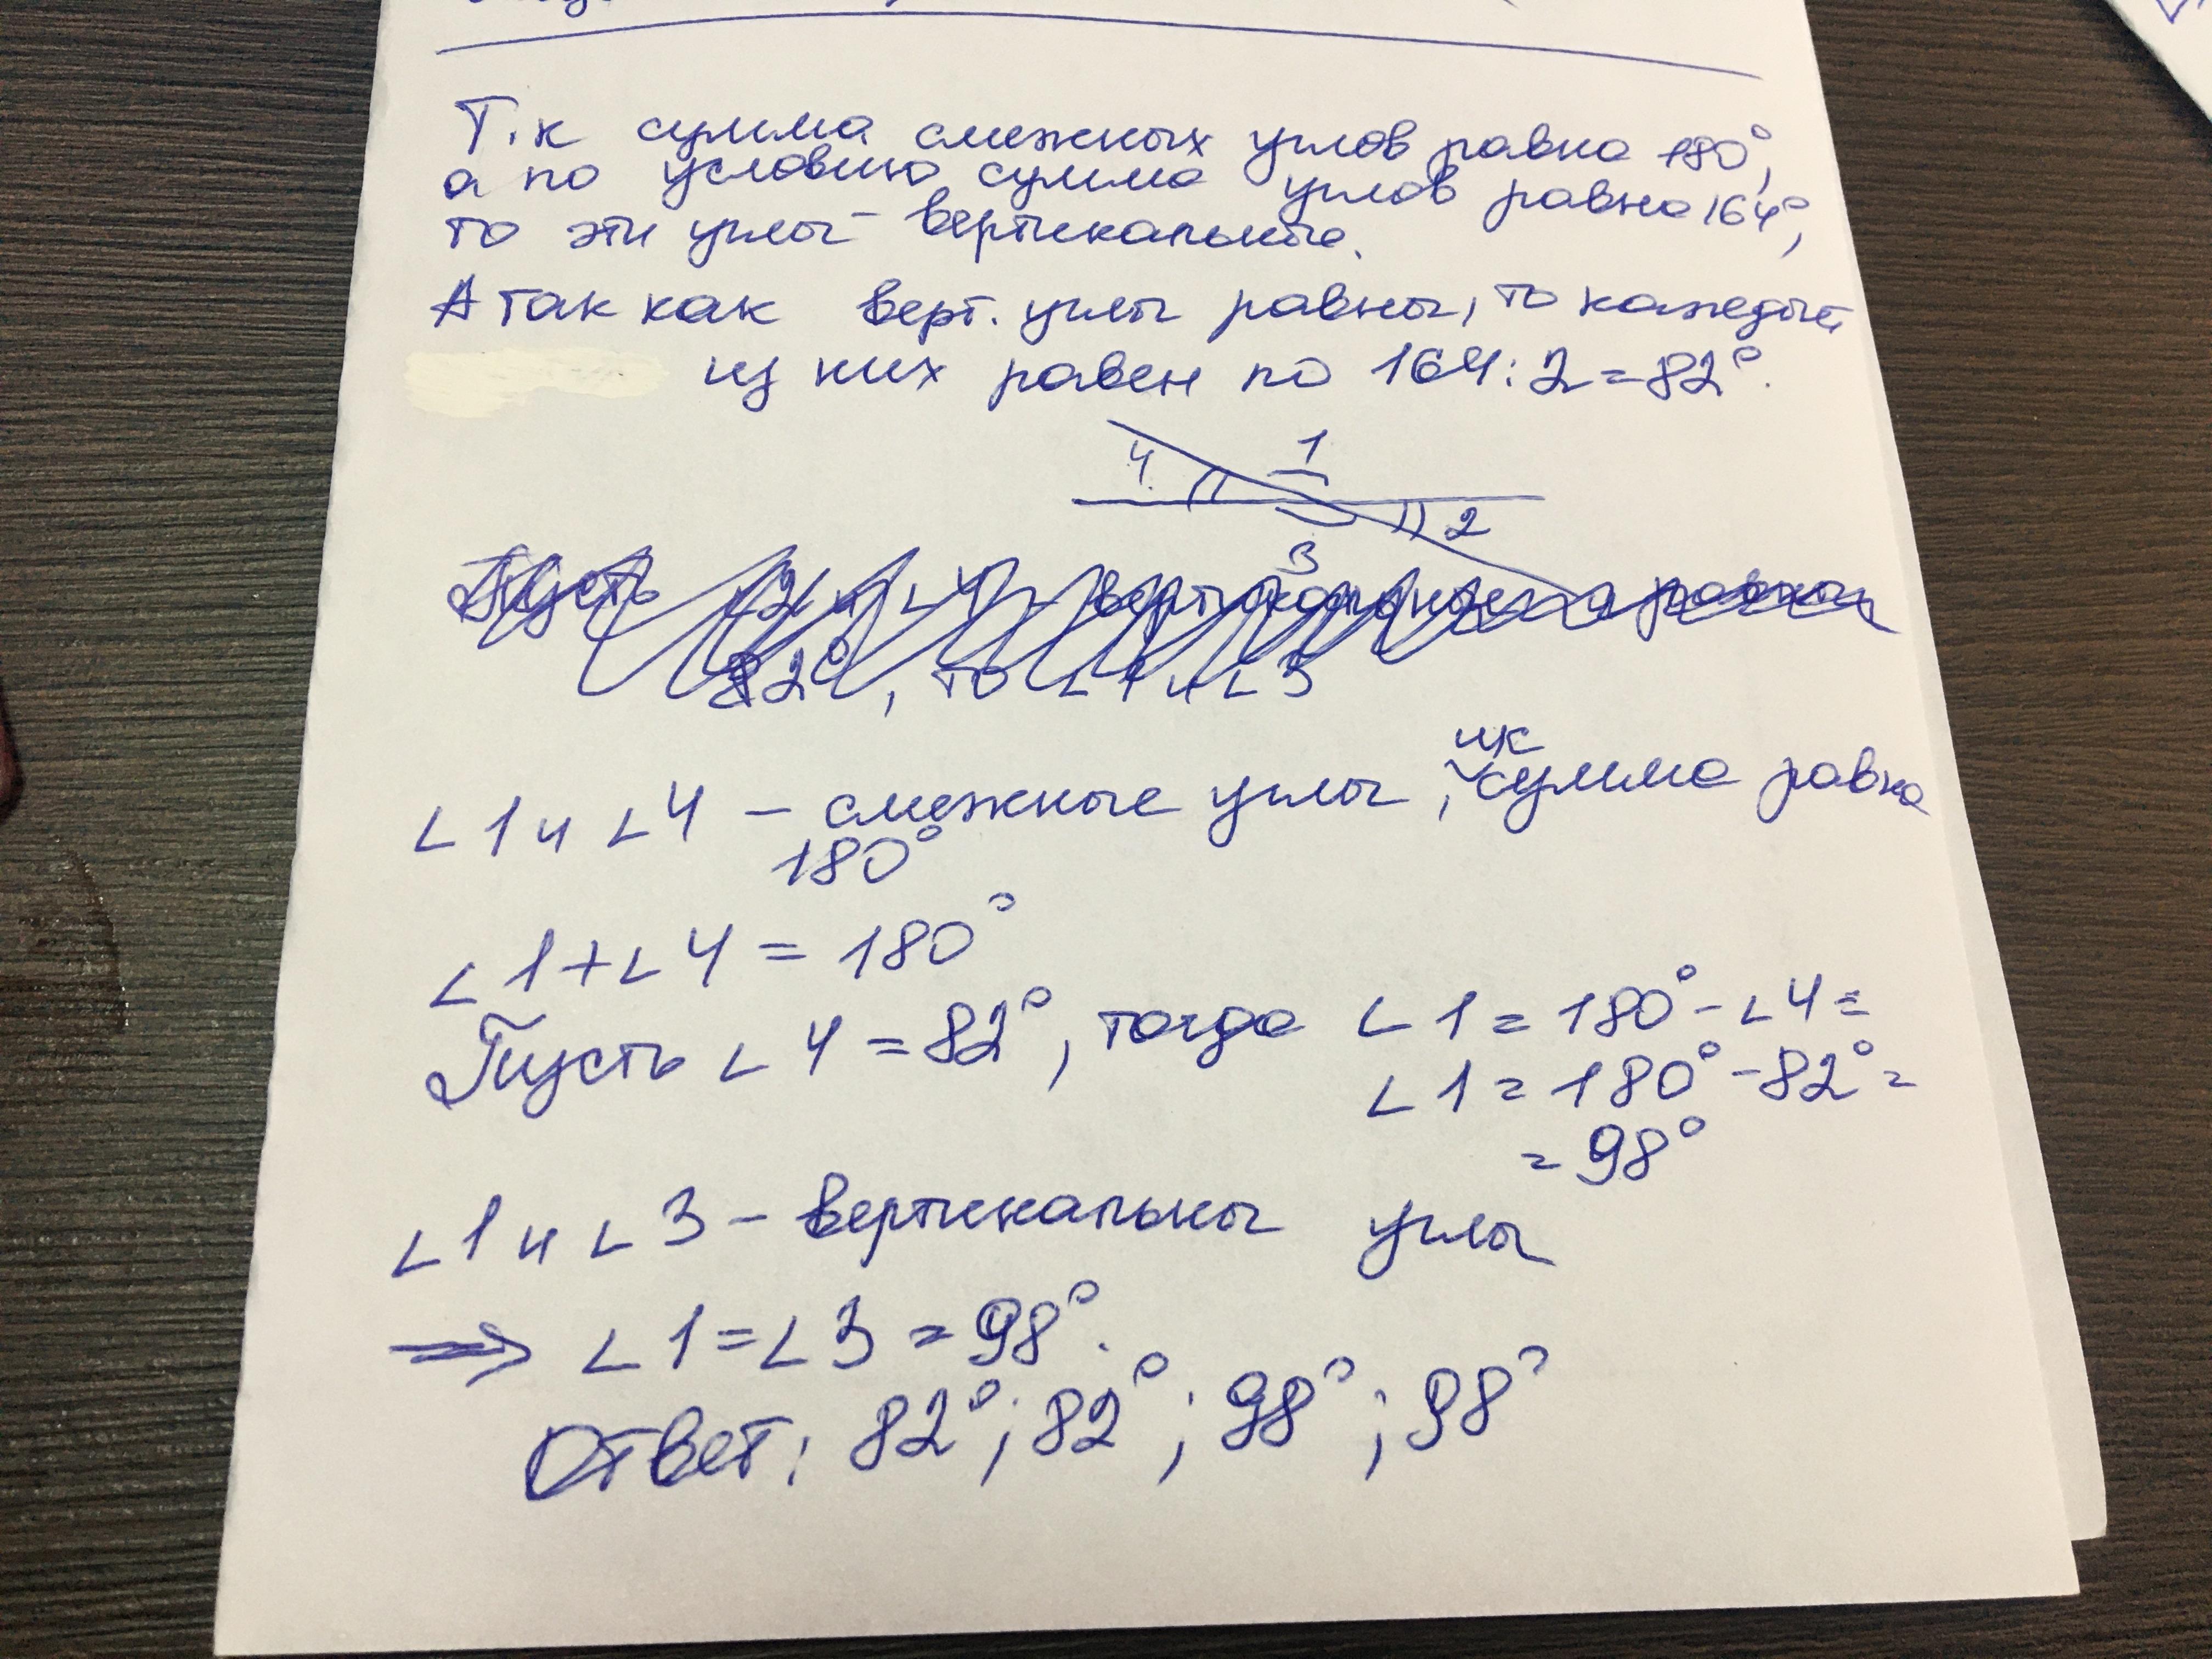 Т.к сумма смежных углов равна 180°,
а по условию сумма углов равна 164°,
то эти углы - вертикальные.
А так как верт. углы равны, то каждый
из них равен по 164:2=82°.
1
4
2
3
Пусть ∠2 и ∠4 - вертикальные и равны
82°, то ∠1 и ∠3
их
∠1 и ∠4 - смежные углы, сумма равна
180°
∠1+∠4=180°
Пусть ∠4=82°, тогда ∠1=180°-∠4=
∠1=180°-82°=
=98°
∠1 и ∠3 - вертикальны углы
⇒ ∠1=∠3=98°.
Ответ: 82°; 82°; 98°; 98°